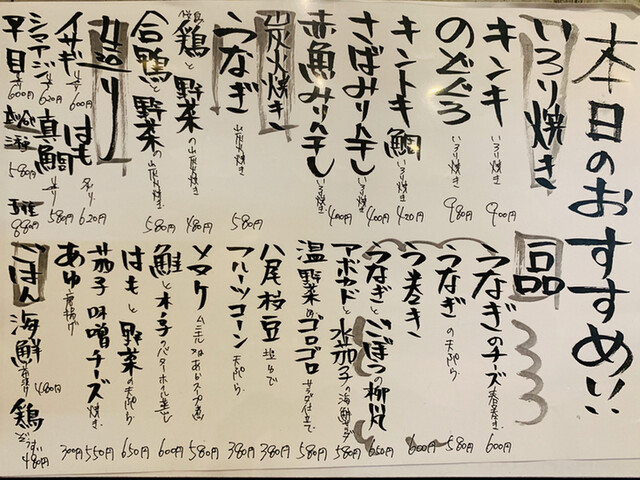 本日のおすすめい
いろり焼き
キンキ いろり焼き 900円
のどぐろ いろり焼き 980円
キントキ鯛 いろり焼き 420円
さばみりん干し いろり焼 400円
赤魚みりん干し いろり焼 400円
炭火焼き
うなぎ 炭火焼き 580円
鶏と野菜の炭火焼き 480円
合鴨と野菜の炭火焼き 580円
造り
はも 620円
イサギ 造り 600円
真鯛 造り 580円
シマアジ 造り 620円
平目 造り 600円
580円
880円
一品
うなぎのチーズ春巻き 600円
うなぎの天ぷら 580円
う巻き 600円
うなぎとごぼうの柳川 650円
アボカドと水茄子の海鮮サラダ 580円
温野菜のゴロゴロサラダ仕立て 580円
八尾枝豆 塩ゆで 380円
フルーツコーン 天ぷら 380円
580円
鮭と木ノ子のバターホイル蒸し 600円
はもと野菜の天ぷら 650円
茄子味噌チーズ焼き 550円
あゆ 唐揚げ 300円
ごはん
海鮮 480円
鶏ぞうすい 480円